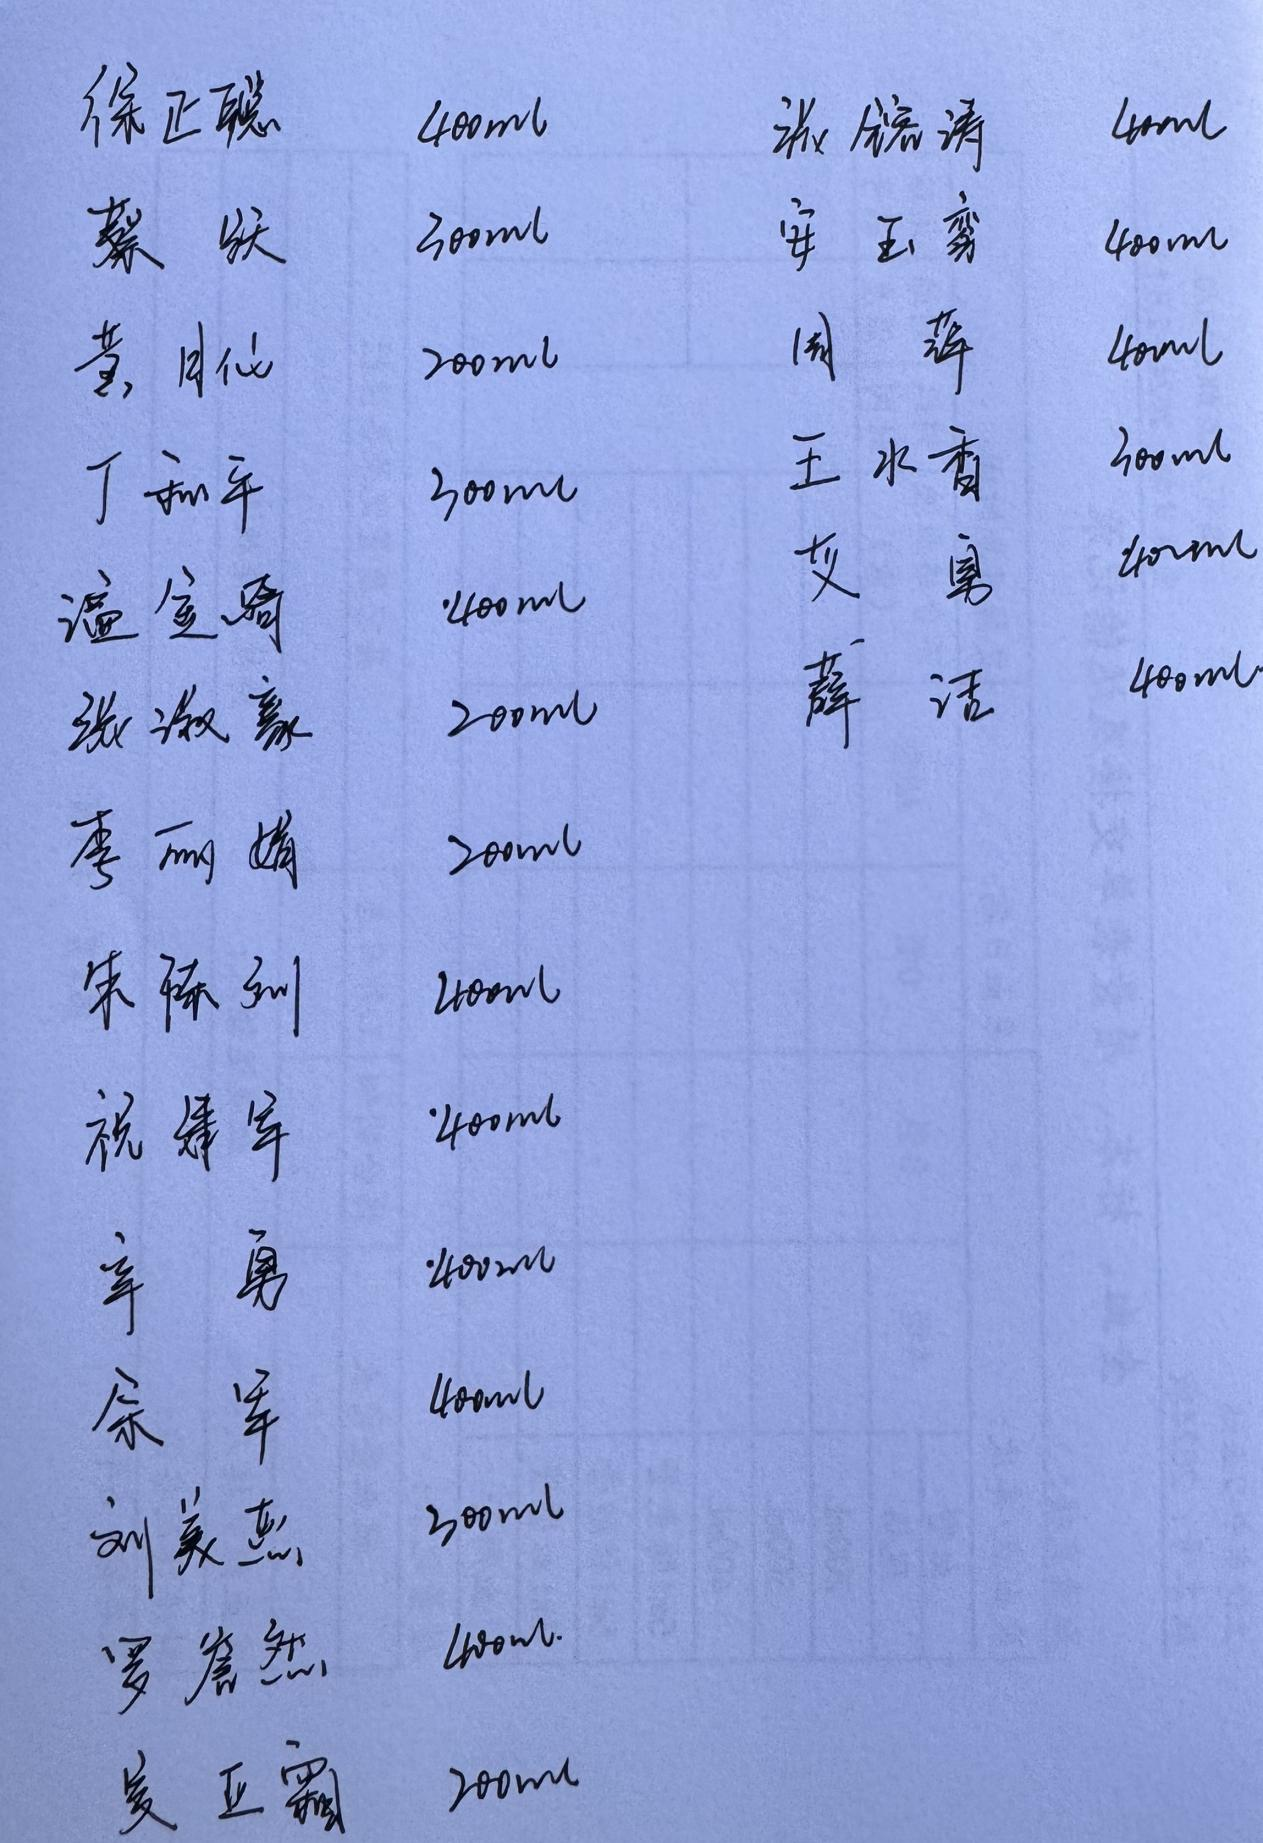 徐正聪 400ml
蔡 跃 300ml
黄月仙 200ml
丁和平 300ml
温宝骑 400ml
张淑豪 200ml
李丽娟 200ml
朱陈剑 400ml
祝建军 400ml
辛 勇 400ml
余 军 400ml
刘美燕 300ml
罗詹然 400ml
吴亚霜 200ml
张 涛 400ml
安玉鸾 400ml
周 萍 400ml
王水香 300ml
艾 勇 400ml
薛 洁 400ml